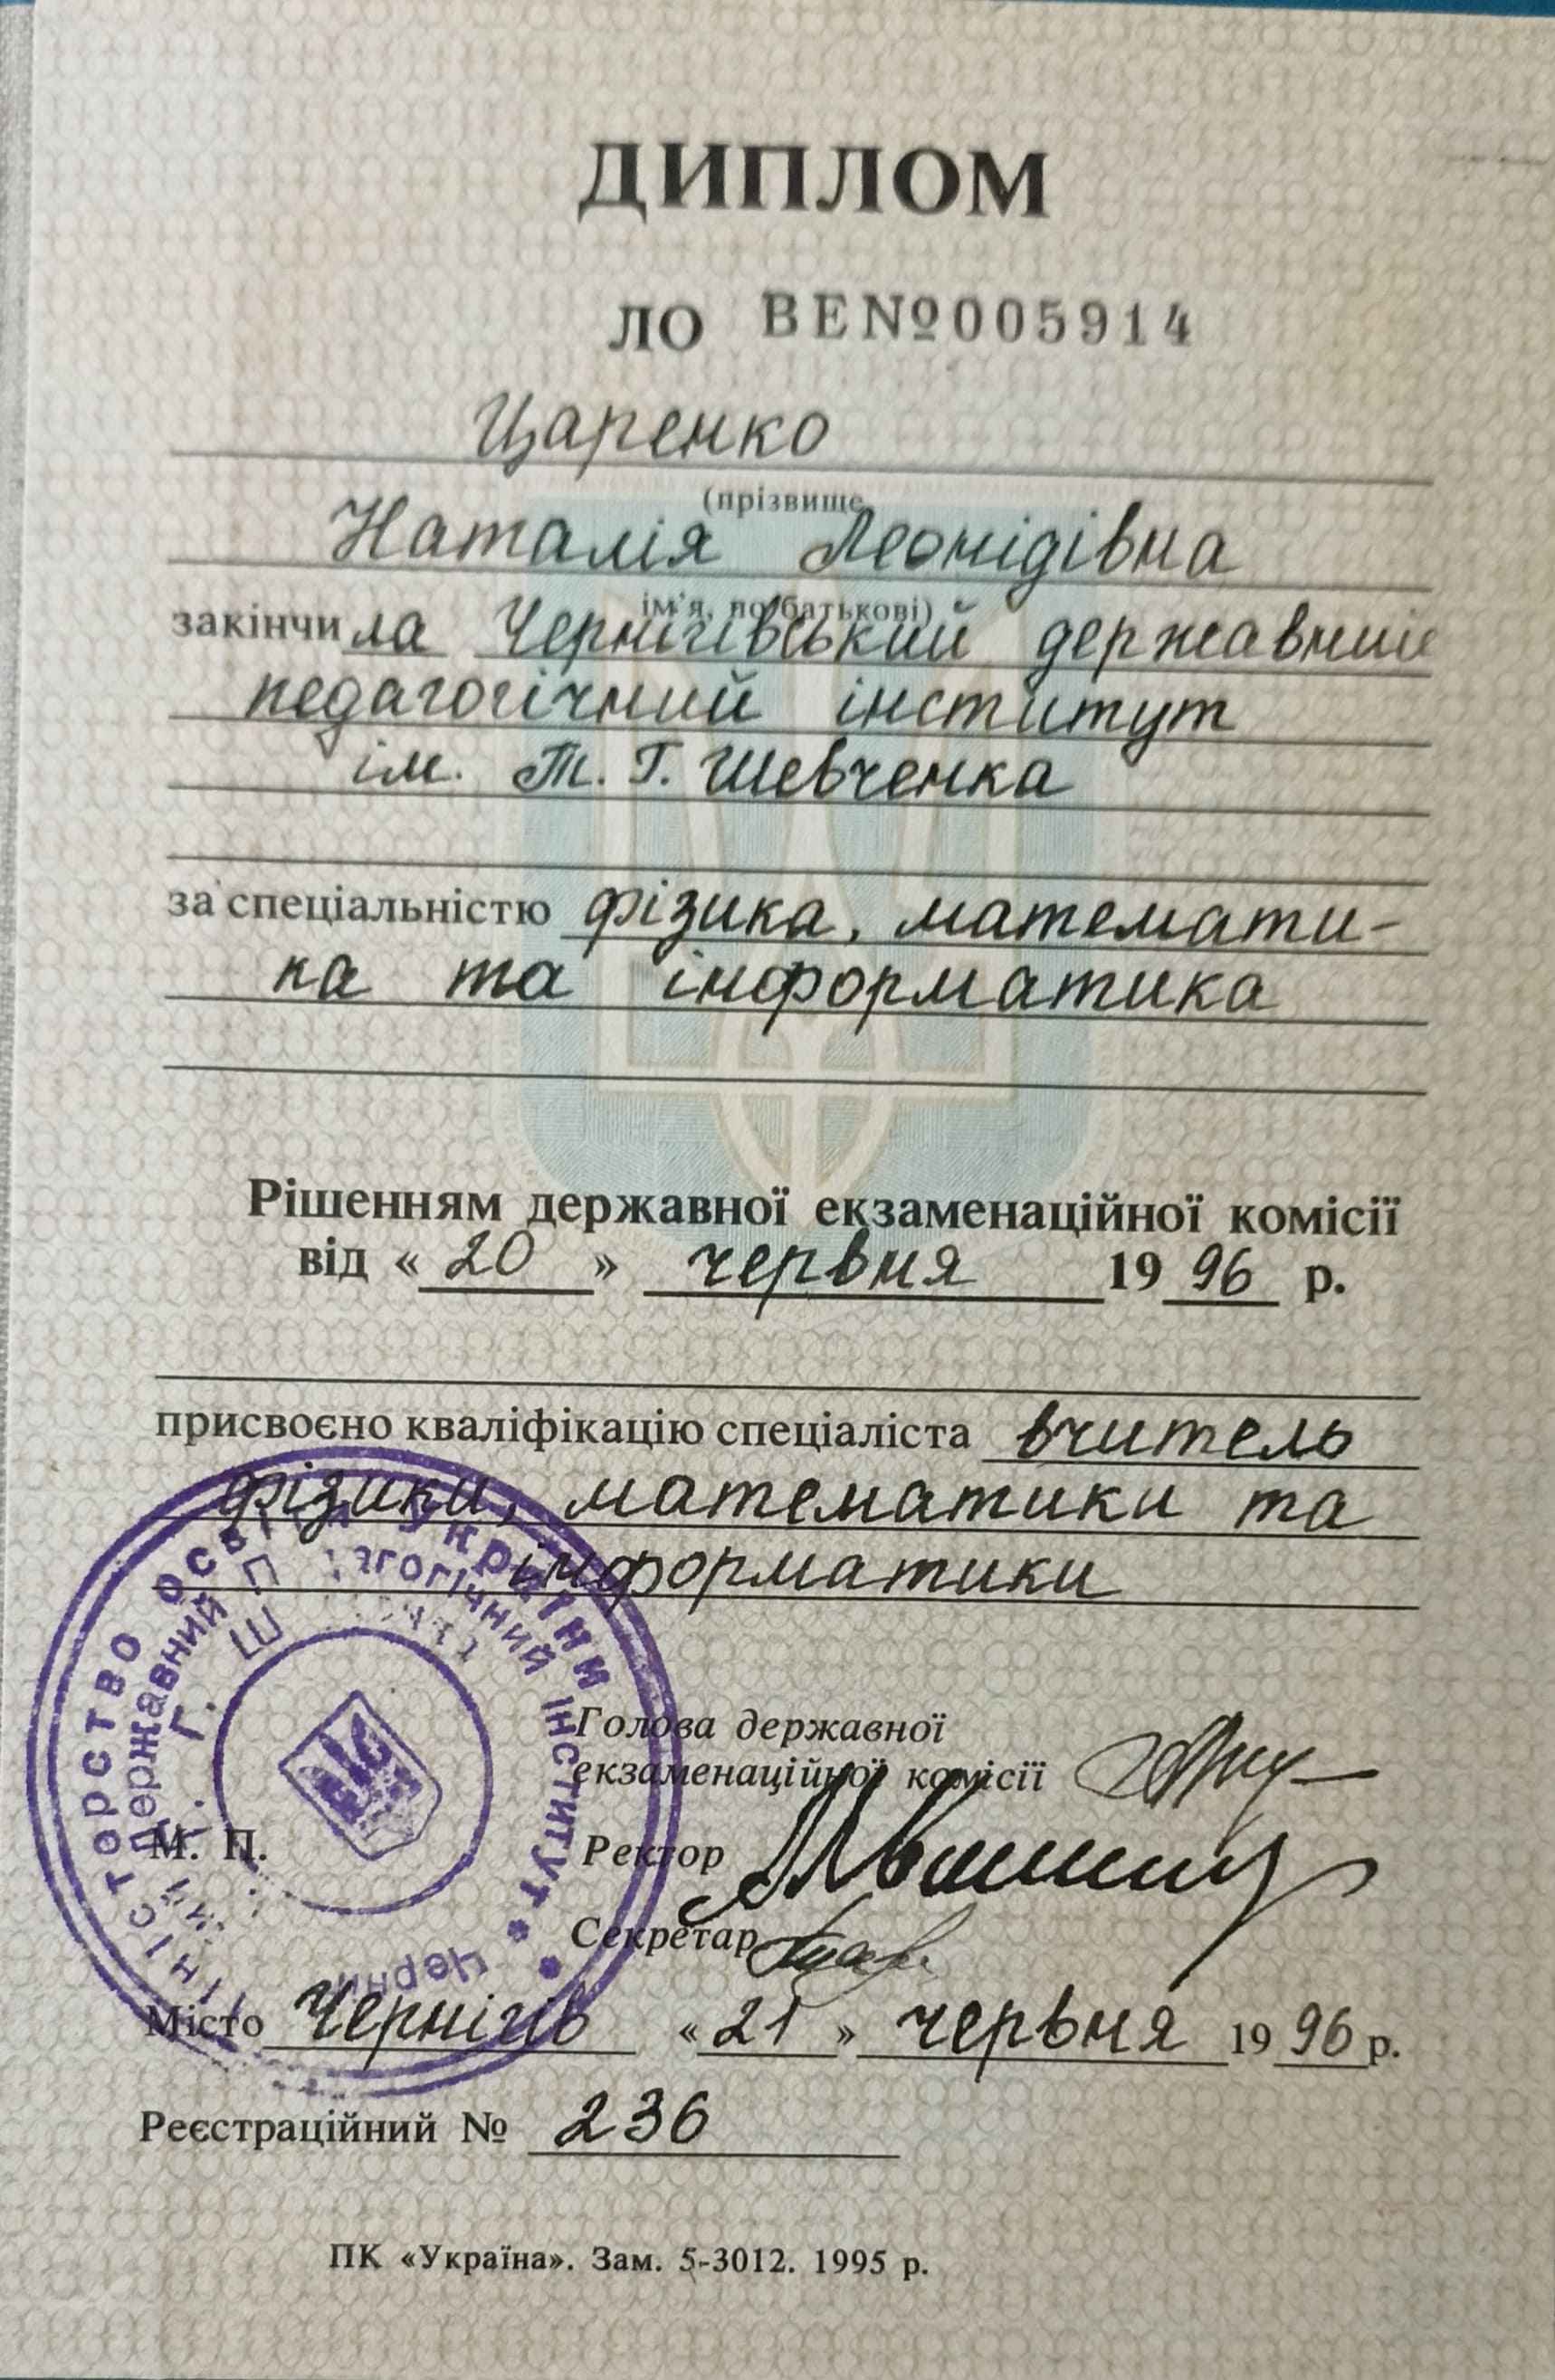 ДИПЛОМ
ЛО ВЕ№005914
Царенко
(прізвище,
Наталія Леонідівна
ім'я, по батькові)
закінчила Чернігівський державний
педагогічний інститут
ім. Т. Г. Шевченка
за спеціальністю фізика, математи-
ка та інформатика
Рішенням державної екзаменаційної комісії
від «20» червня 1996 р.
присвоєно кваліфікацію спеціаліста вчитель
фізики, математики та
інформатики
Голова державної
екзаменаційної комісії
М. П.
Ректор
Секретар
Місто Чернігів «21» червня 1996 р.
Реєстраційний № 236
ПК «Україна». Зам. 5-3012. 1995 р.
освіти України
державний
інститут